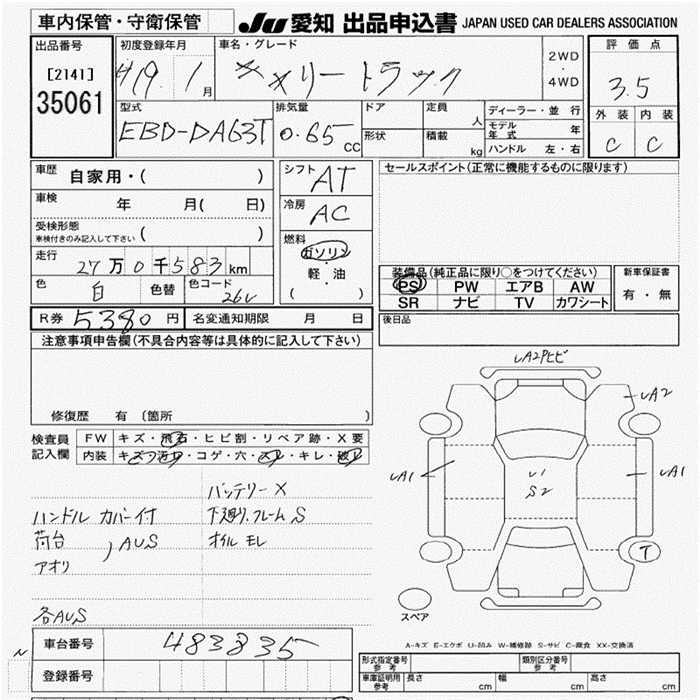 車内保管・守衛保管
JU 愛知 出品申込書 JAPAN USED CAR DEALERS ASSOCIATION
出品番号
[2141]
35061
初度登録年月
H19. 1月
車名・グレード
キャリートラック
2WD
・
4WD
評価点
3.5
外装 内装
C C
型式
EBD-DA63T
排気量
0.65cc
ドア
形状
定員 人
積載 kg
ディーラー・並行
モデル年式 年
ハンドル 左・右
車歴 自家用・( )
車検 年 月( 日)
受検形態
※検付きのみ記入して下さい ( )
走行 27万0千583km
色 白 色替 色コード 26U
シフト AT
冷房 AC
燃料
ガソリン
・
軽・油
( )
セールスポイント(正常に機能するものに限ります)
装備品(純正品に限り○をつけてください)
PS PW エアB AW
SR ナビ TV カワシート
新車保証書
有・無
R券 5,380円 名変通知期限 月 日
後日品
注意事項申告欄(不具合内容等は具体的に記入して下さい)
修復歴 有 (箇所 )
検査員記入欄
FW キズ・飛石・ヒビ割・リペア跡・X要
内装 キズ・汚れ・コゲ・穴・スレ・キレ・破レ
バッテリーX
ハンドルカバー付 下廻り.フレームS
荷台 オイルモレ
アオリ
,AUS
各AUS
UA2Pヒビ
UA2
UA1
U1
S2
UA1
T
スペア
A-キズ E-エクボ U-凹み W-補修跡 S-サビ C-腐食 XX-交換済
車台番号 483835
登録番号
N
形式指定番号 参考
類別区分番号 参考
車庫証明用 参考 長さ cm 幅 cm 高さ cm